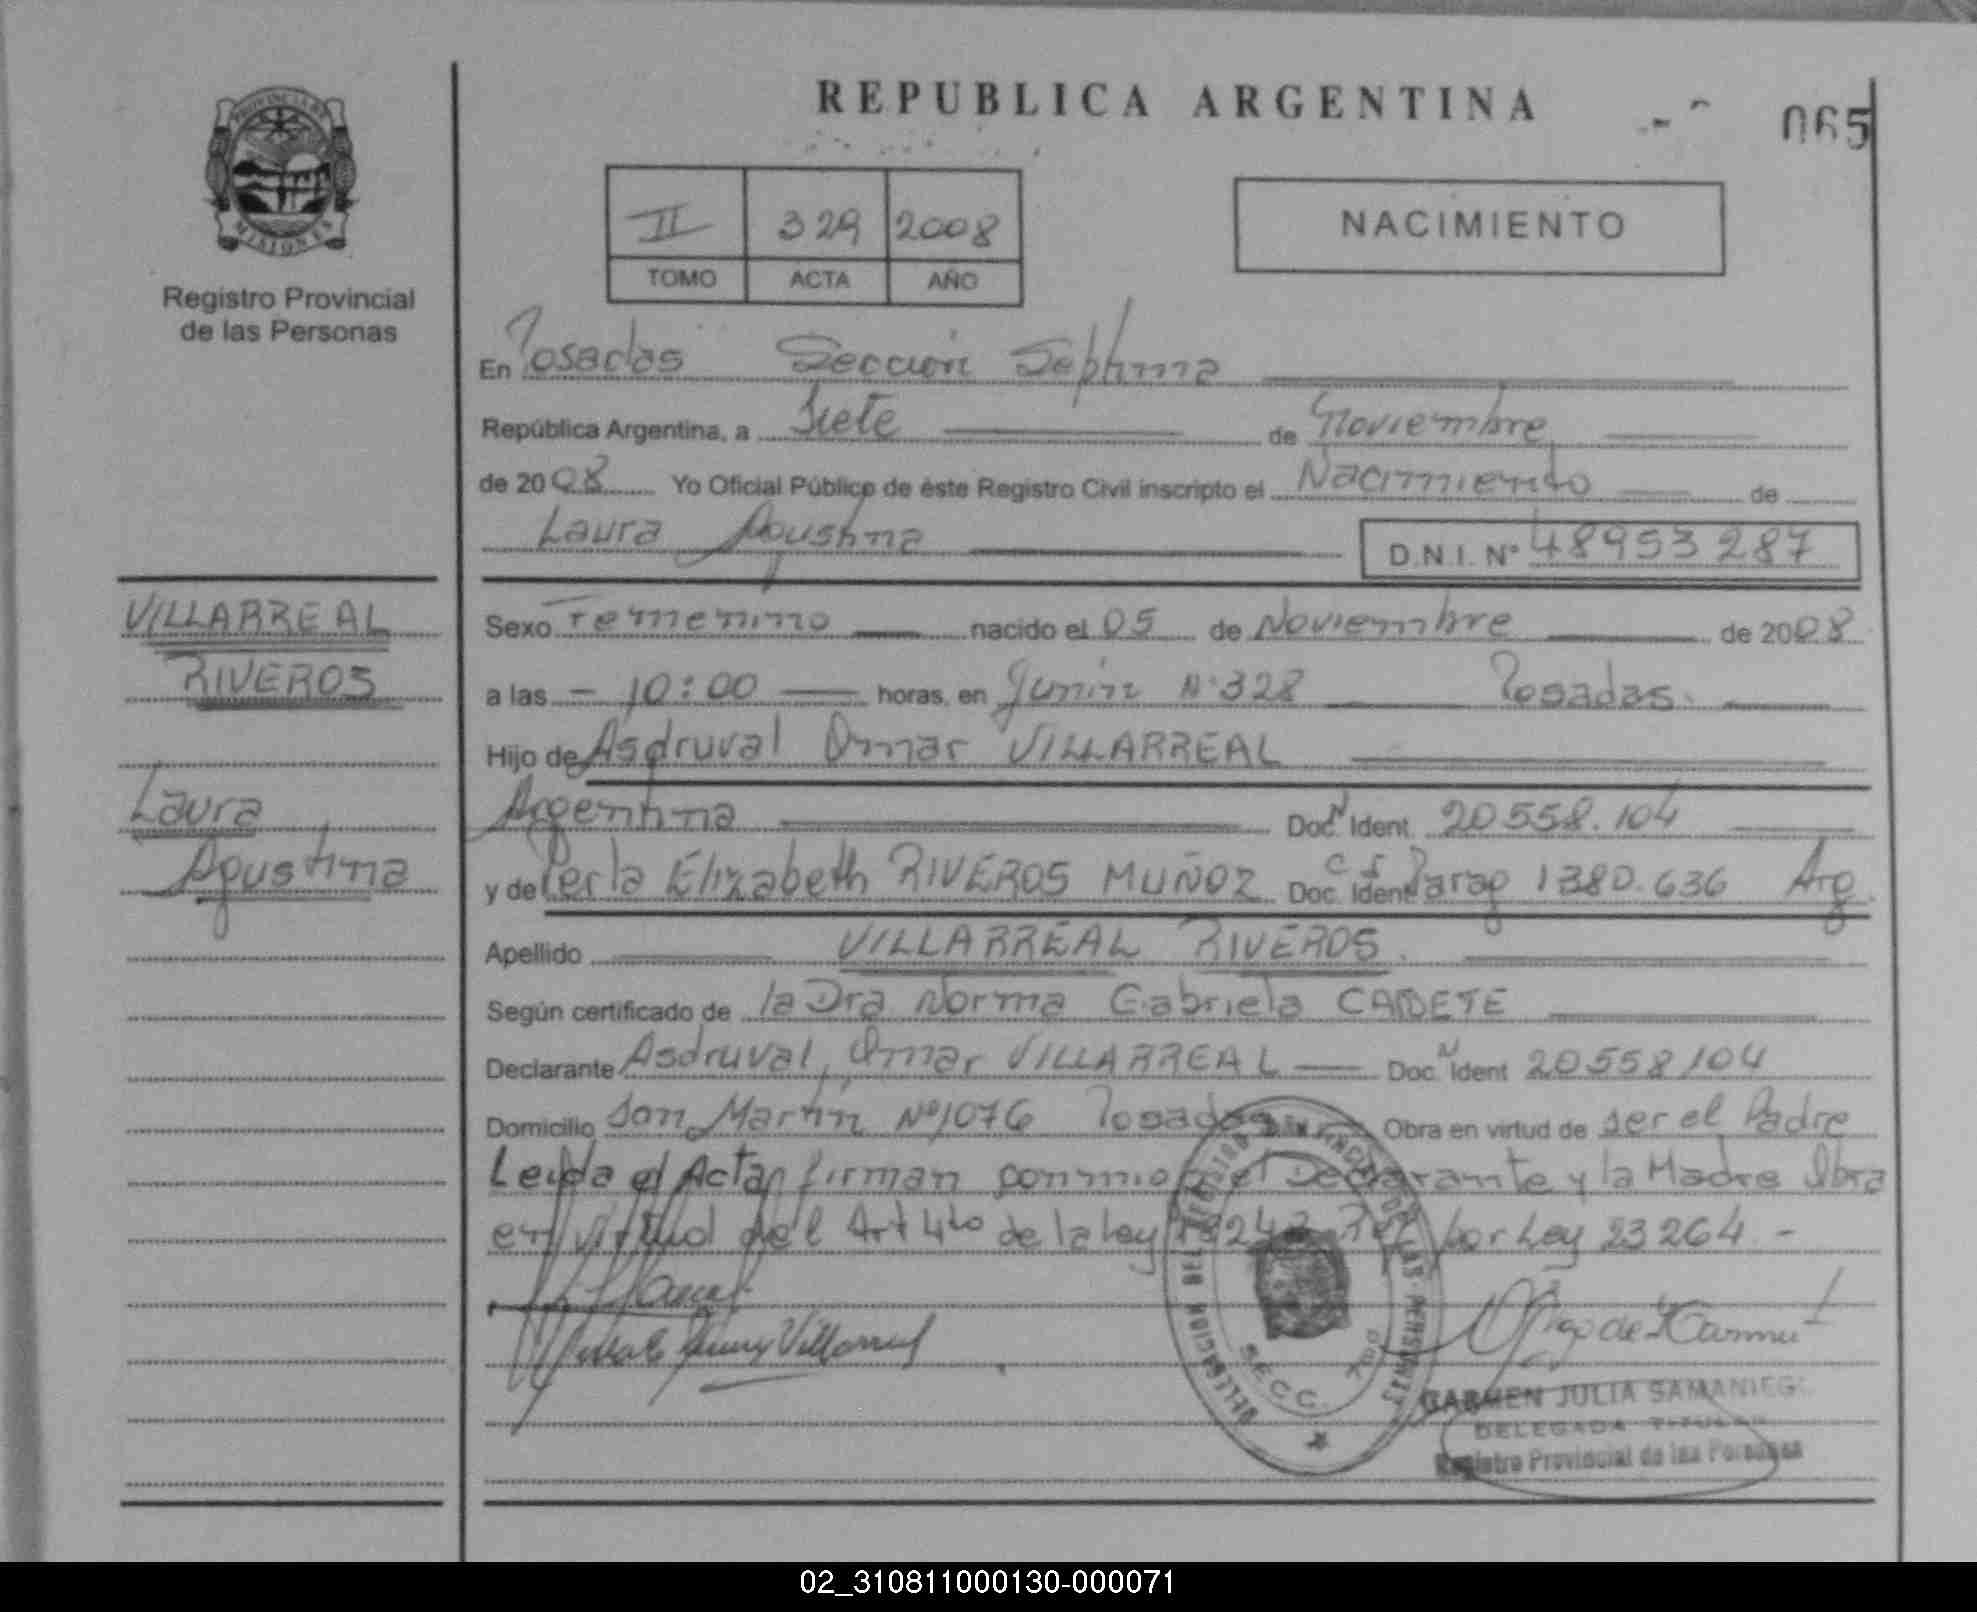 REPUBLICA ARGENTINA
065
PROVINCIA DE
MISIONES
Registro Provincial
de las Personas
II 329 2008
TOMO ACTA AÑO
NACIMIENTO
En Posadas Sección Septima
República Argentina, a Siete de Noviembre
de 2008 Yo Oficial Público de éste Registro Civil inscripto el Nacimiento de
Laura Agustina D.N.I. Nº 48953287
VILLARREAL
RIVEROS
Laura
Agustina
Sexo Femenino nacido el 05 de Noviembre de 2008
a las - 10:00 horas, en Junin Nº 328 Posadas.
Hijo de Asdruval Omar VILLARREAL
Argentina Doc. N Ident 20558.104
y de Perla Elizabeth RIVEROS MUÑOZ Doc. Ident Parag 1380.636 Arg
Apellido VILLARREAL RIVEROS.
Según certificado de la Dra Norma Gabriela CAÑETE
Declarante Asdruval, Omar VILLARREAL Doc. N Ident 20558104
Domicilio San Martin Nº 1076 Posadas Obra en virtud de ser el Padre
Leida el Acta firman conmigo el Declarante y la Madre Obra
en virtud del Art 4to de la ley 18248 por Ley 23264.-
DELEGACION DEL REGISTRO PROVINCIAL DE LAS PERSONAS
SECC. 7ma
CARMEN JULIA SAMANIEGO
DELEGADA TITULAR
Registro Provincial de las Personas
02_310811000130-000071